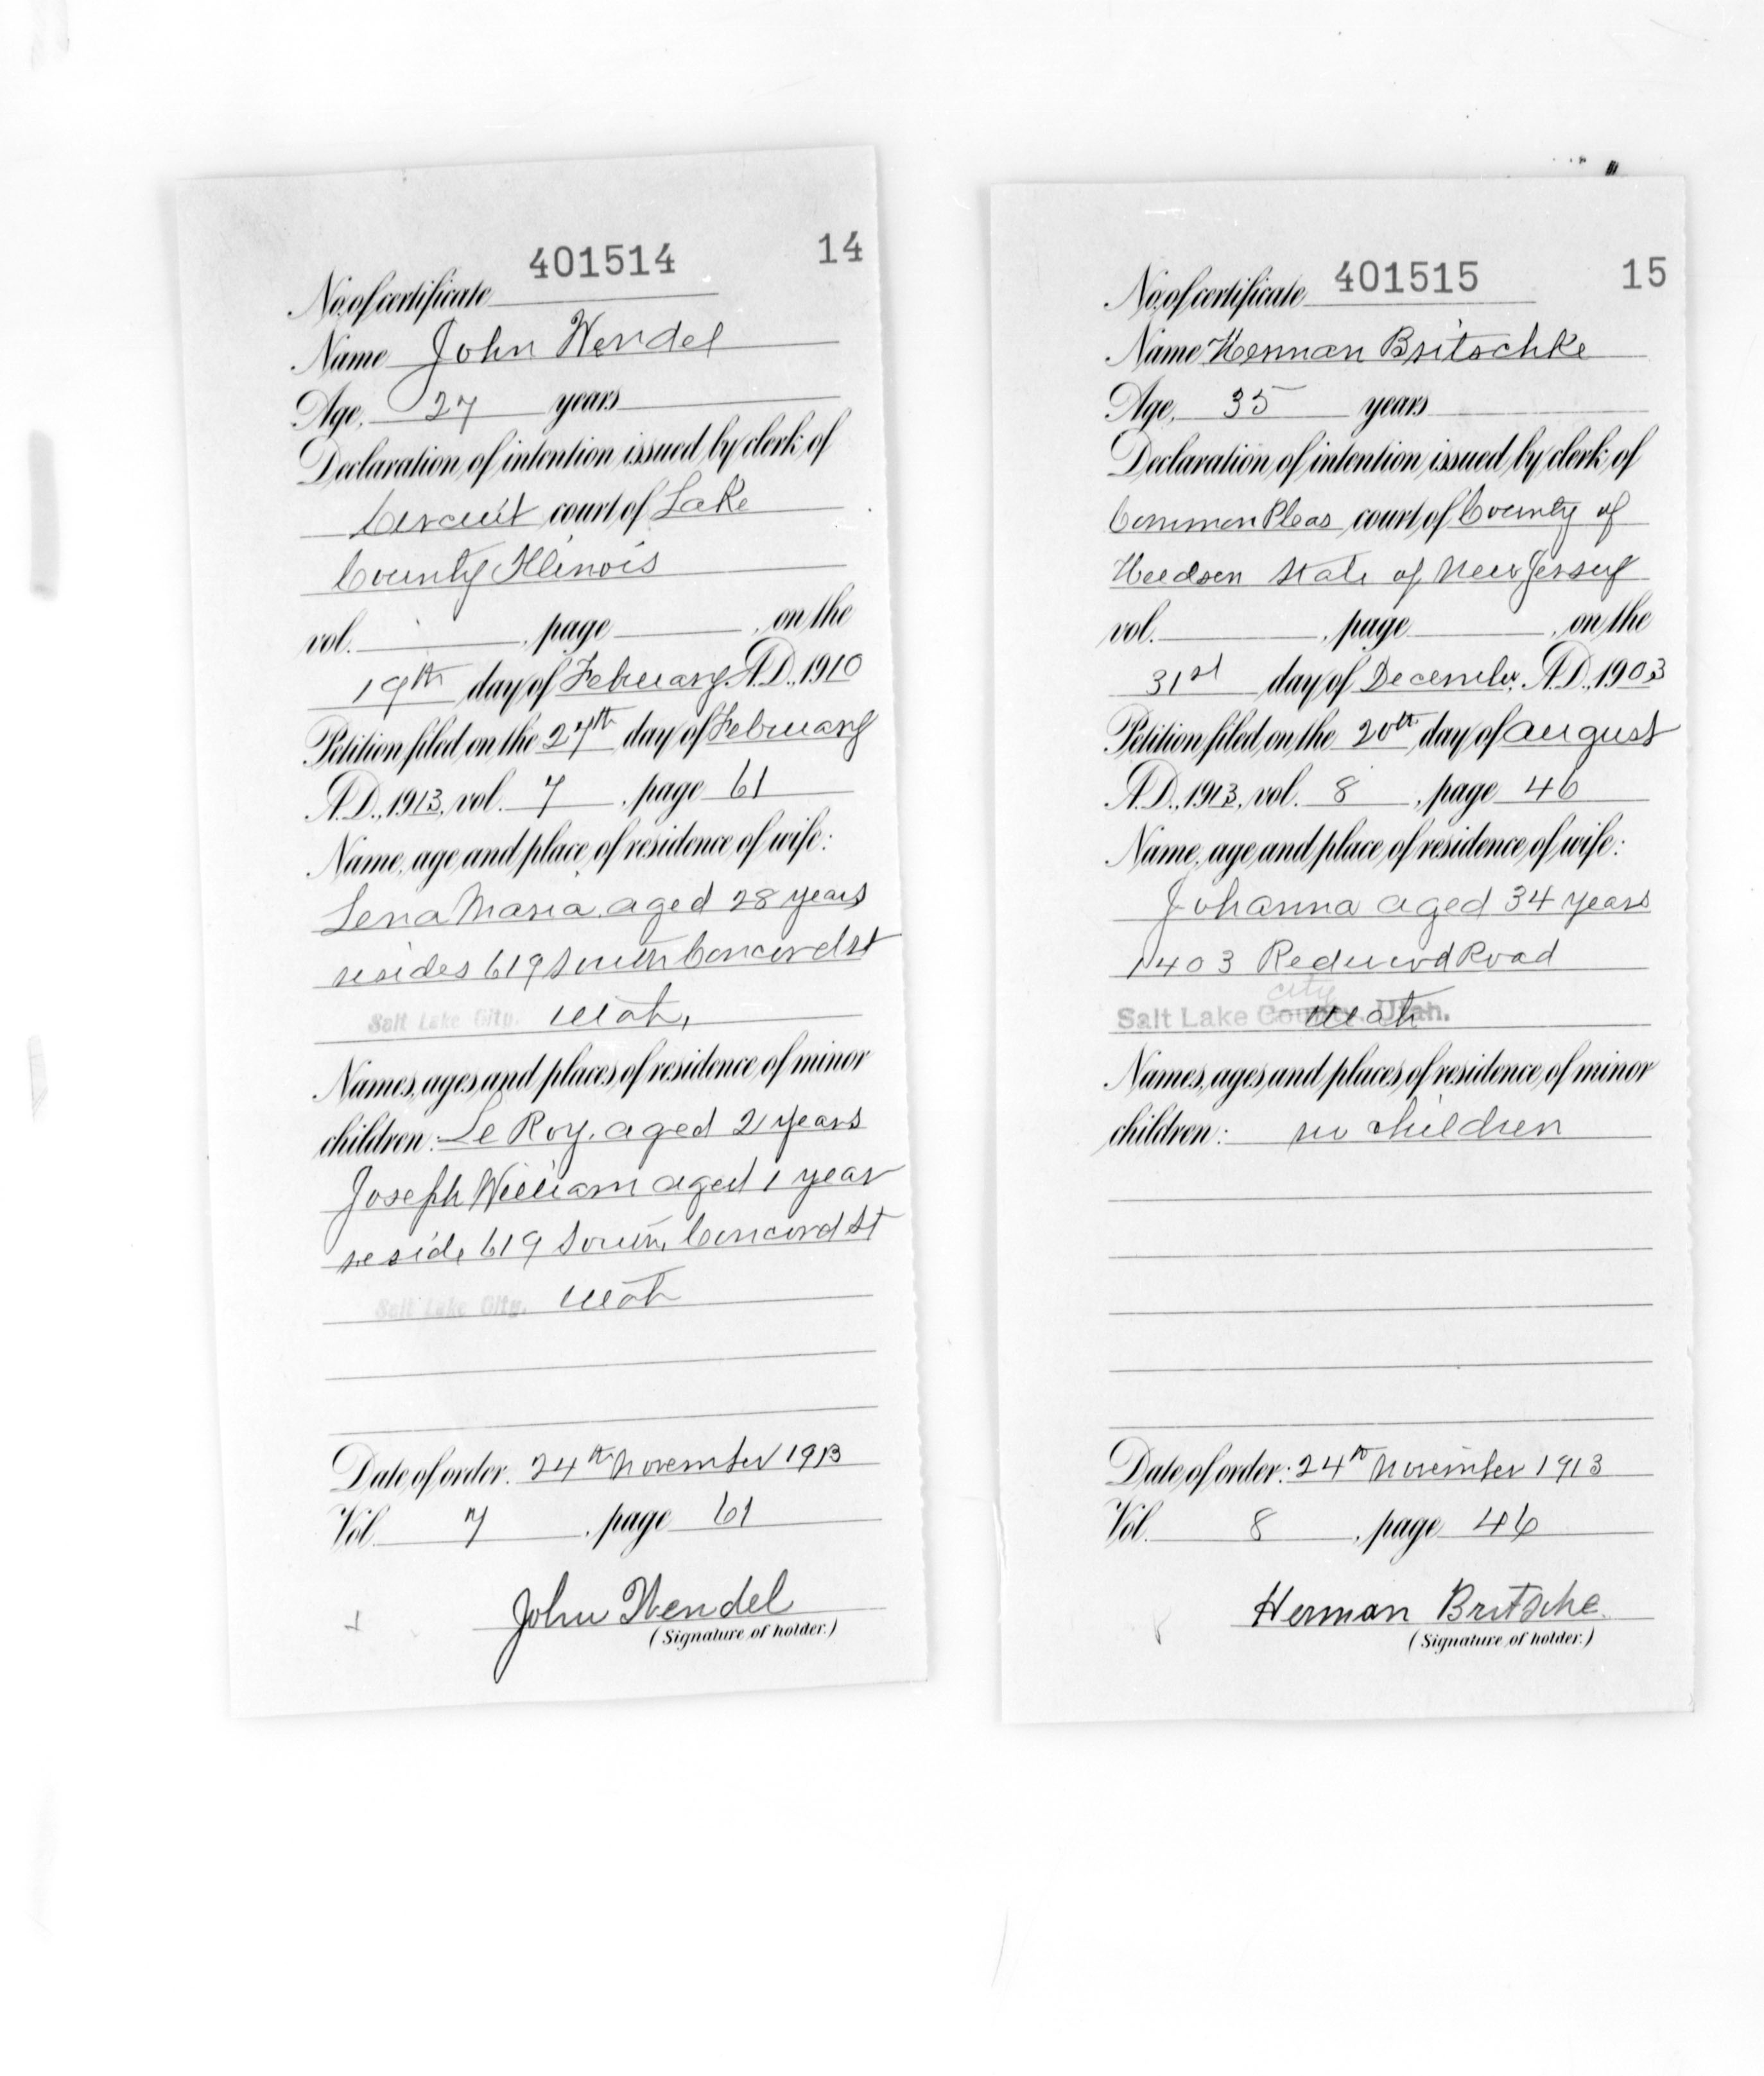 401514 14
No. of certificate
Name John Wendel
Age, 27 years
Declaration of intention issued by clerk of
Circuit court of Lake
County Illinois
vol. , page , on the
19th day of February A.D., 1910
Petition filed on the 27th day of February
A.D., 1913, vol. 7 , page 61
Name, age and place of residence of wife:
Lena Maria. aged 28 years
resides 619 South Concord St
Salt Lake City. Utah,
Names, ages and places of residence of minor
children: Le Roy. aged 2 years
Joseph William aged 1 year
reside 619 South, Concord St
Salt Lake City. Utah
Date of order. 24th November 1913
Vol. 7 , page 61
John Wendel
(Signature of holder.)
401515 15
No. of certificate
Name Herman Britschke
Age, 35 years
Declaration of intention issued by clerk of
Common Pleas court of County of
Hudson State of New Jersey
vol. , page , on the
31st day of December, A.D., 1903
Petition filed on the 20th day of August
A.D., 1913, vol. 8 , page 46
Name, age and place of residence of wife:
Johanna aged 34 years
1403 Redwood Road
city
Salt Lake County, Utah. Utah
Names, ages and places of residence of minor
children: no children
Date of order: 24th November 1913
Vol. 8 , page 46
Herman Britsche
(Signature of holder.)